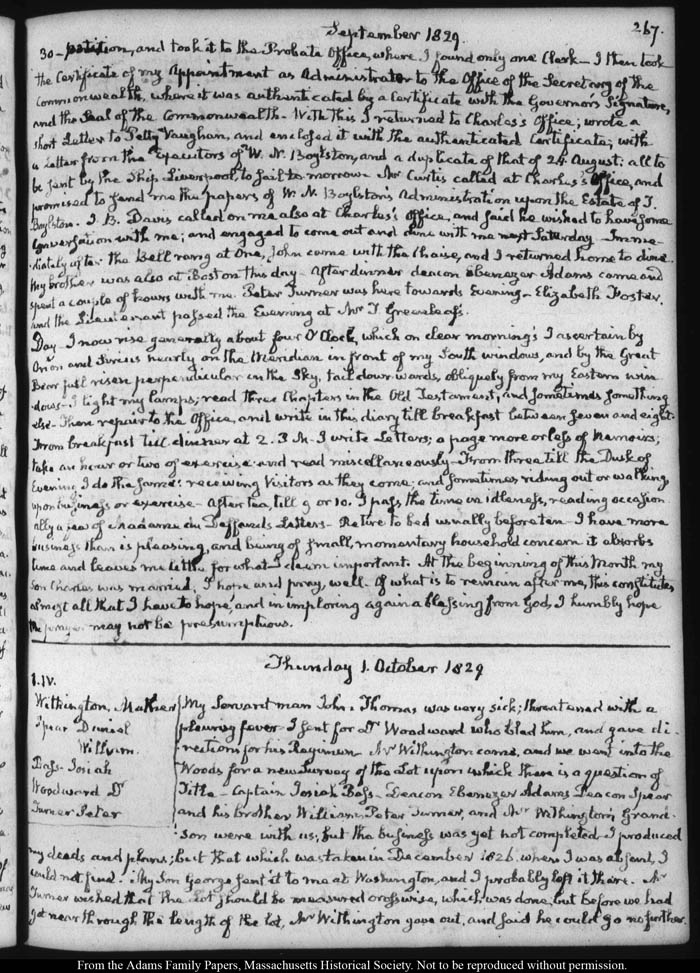 September 1829.
267.
30 - petition, and took it to the Probate Office, where I found only one Clerk - I then took
the Certificate of my Appointment as Administrator to the Office of the Secretary of the
Commonwealth, where it was authenticated by a Certificate with the Governor's Signature,
and the Seal of the Commonwealth - With this I returned to Charles's Office; wrote a
short Letter to Petty Vaughan, and enclosed it with the authenticated Certificate; with
a Letter from the Executors of W. N. Boylston, and a duplicate of that of 24 August; all to
be sent by the Ship Liverpool, to sail to-morrow. Mr Curtis called at Charles's Office, and
promised to send me the papers of W. N. Boylston's Administration upon the Estate of T.
Boylston. I. B. Davis called on me also at Charles's Office, and said he wished to have some
Conversation with me; and engaged to come out and dine with me next Saturday - Imme-
diately after the Bell rang at One, John came with the Chaise, and I returned home to dine.
My brother was also at Boston this day - After dinner deacon Ebenezer Adams came and
spent a couple of hours with me. Peter Turner was here towards Evening - Elizabeth Foster,
and the Lieutenant passed the Evening at Mr T. Greenleaf's.
Day - I now rise generally about four O'Clock, which on clear morning's I ascertain by
Orion and Sirius nearly on the Meridian in front of my South windows, and by the Great
Bear just risen perpendicular in the Sky, tail downwards, obliquely from my Eastern win-
dows - I light my lamps; read three Chapters in the Old Testament, and sometimes something
else - Then repair to the Office, and write in this diary till breakfast between seven and eight.
From breakfast till dinner at 2. 3 I write Letters; a page more or less of Memoirs;
take an hour or two of exercise and read miscellaneously - From three till the Dusk of
Evening I do the same: receiving Visitors as they come; and sometimes riding out or walking
upon business or exercise - After tea, till 9 or 10. I pass the time in idleness, reading occasion-
ally a few of Madame du Deffand's Letters - Retire to bed usually before ten - I have more
business than is pleasing, and being of small, momentary household concern it absorbs
time and leaves me little for what I deem important. At the beginning of this Month my
Son Charles was married, I hope and pray, well. Of what is to remain after me, this constitutes
almost all that I have to hope, and in imploring again a blessing from God, I humbly hope
the prayer may not be presumptuous.
Thursday 1. October 1829
1. IV.
Withington, Mather
Spear Daniel
William.
Bass Josiah
Woodward Dr
Turner Peter
My Servant man John Thomas was very sick; threatened with a
pleurisy fever - I sent for Dr Woodward who bled him, and gave di-
rections for his Regimen. Mr Withington came, and we went into the
Woods for a new Survey of the Lot upon which there is a question of
Title - Captain Josiah Bass. Deacon Ebenezer Adams Deacon Spear
and his brother William Peter Turner, and Mr Withington's Grand-
son were with us; but the business was yet not completed - I produced
my deeds and plans; but that which was taken in December 1826. when I was absent, I
could not find. My Son George sent it to me at Washington, and I probably left it there. Mr
Turner wished that the Lot should be measured crosswise, which was done, but before we had
got near through the length of the lot, Mr Withington gave out, and said he could go no further.
From the Adams Family Papers, Massachusetts Historical Society. Not to be reproduced without permission.